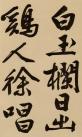 白玉欄日出
鷄人徐唱